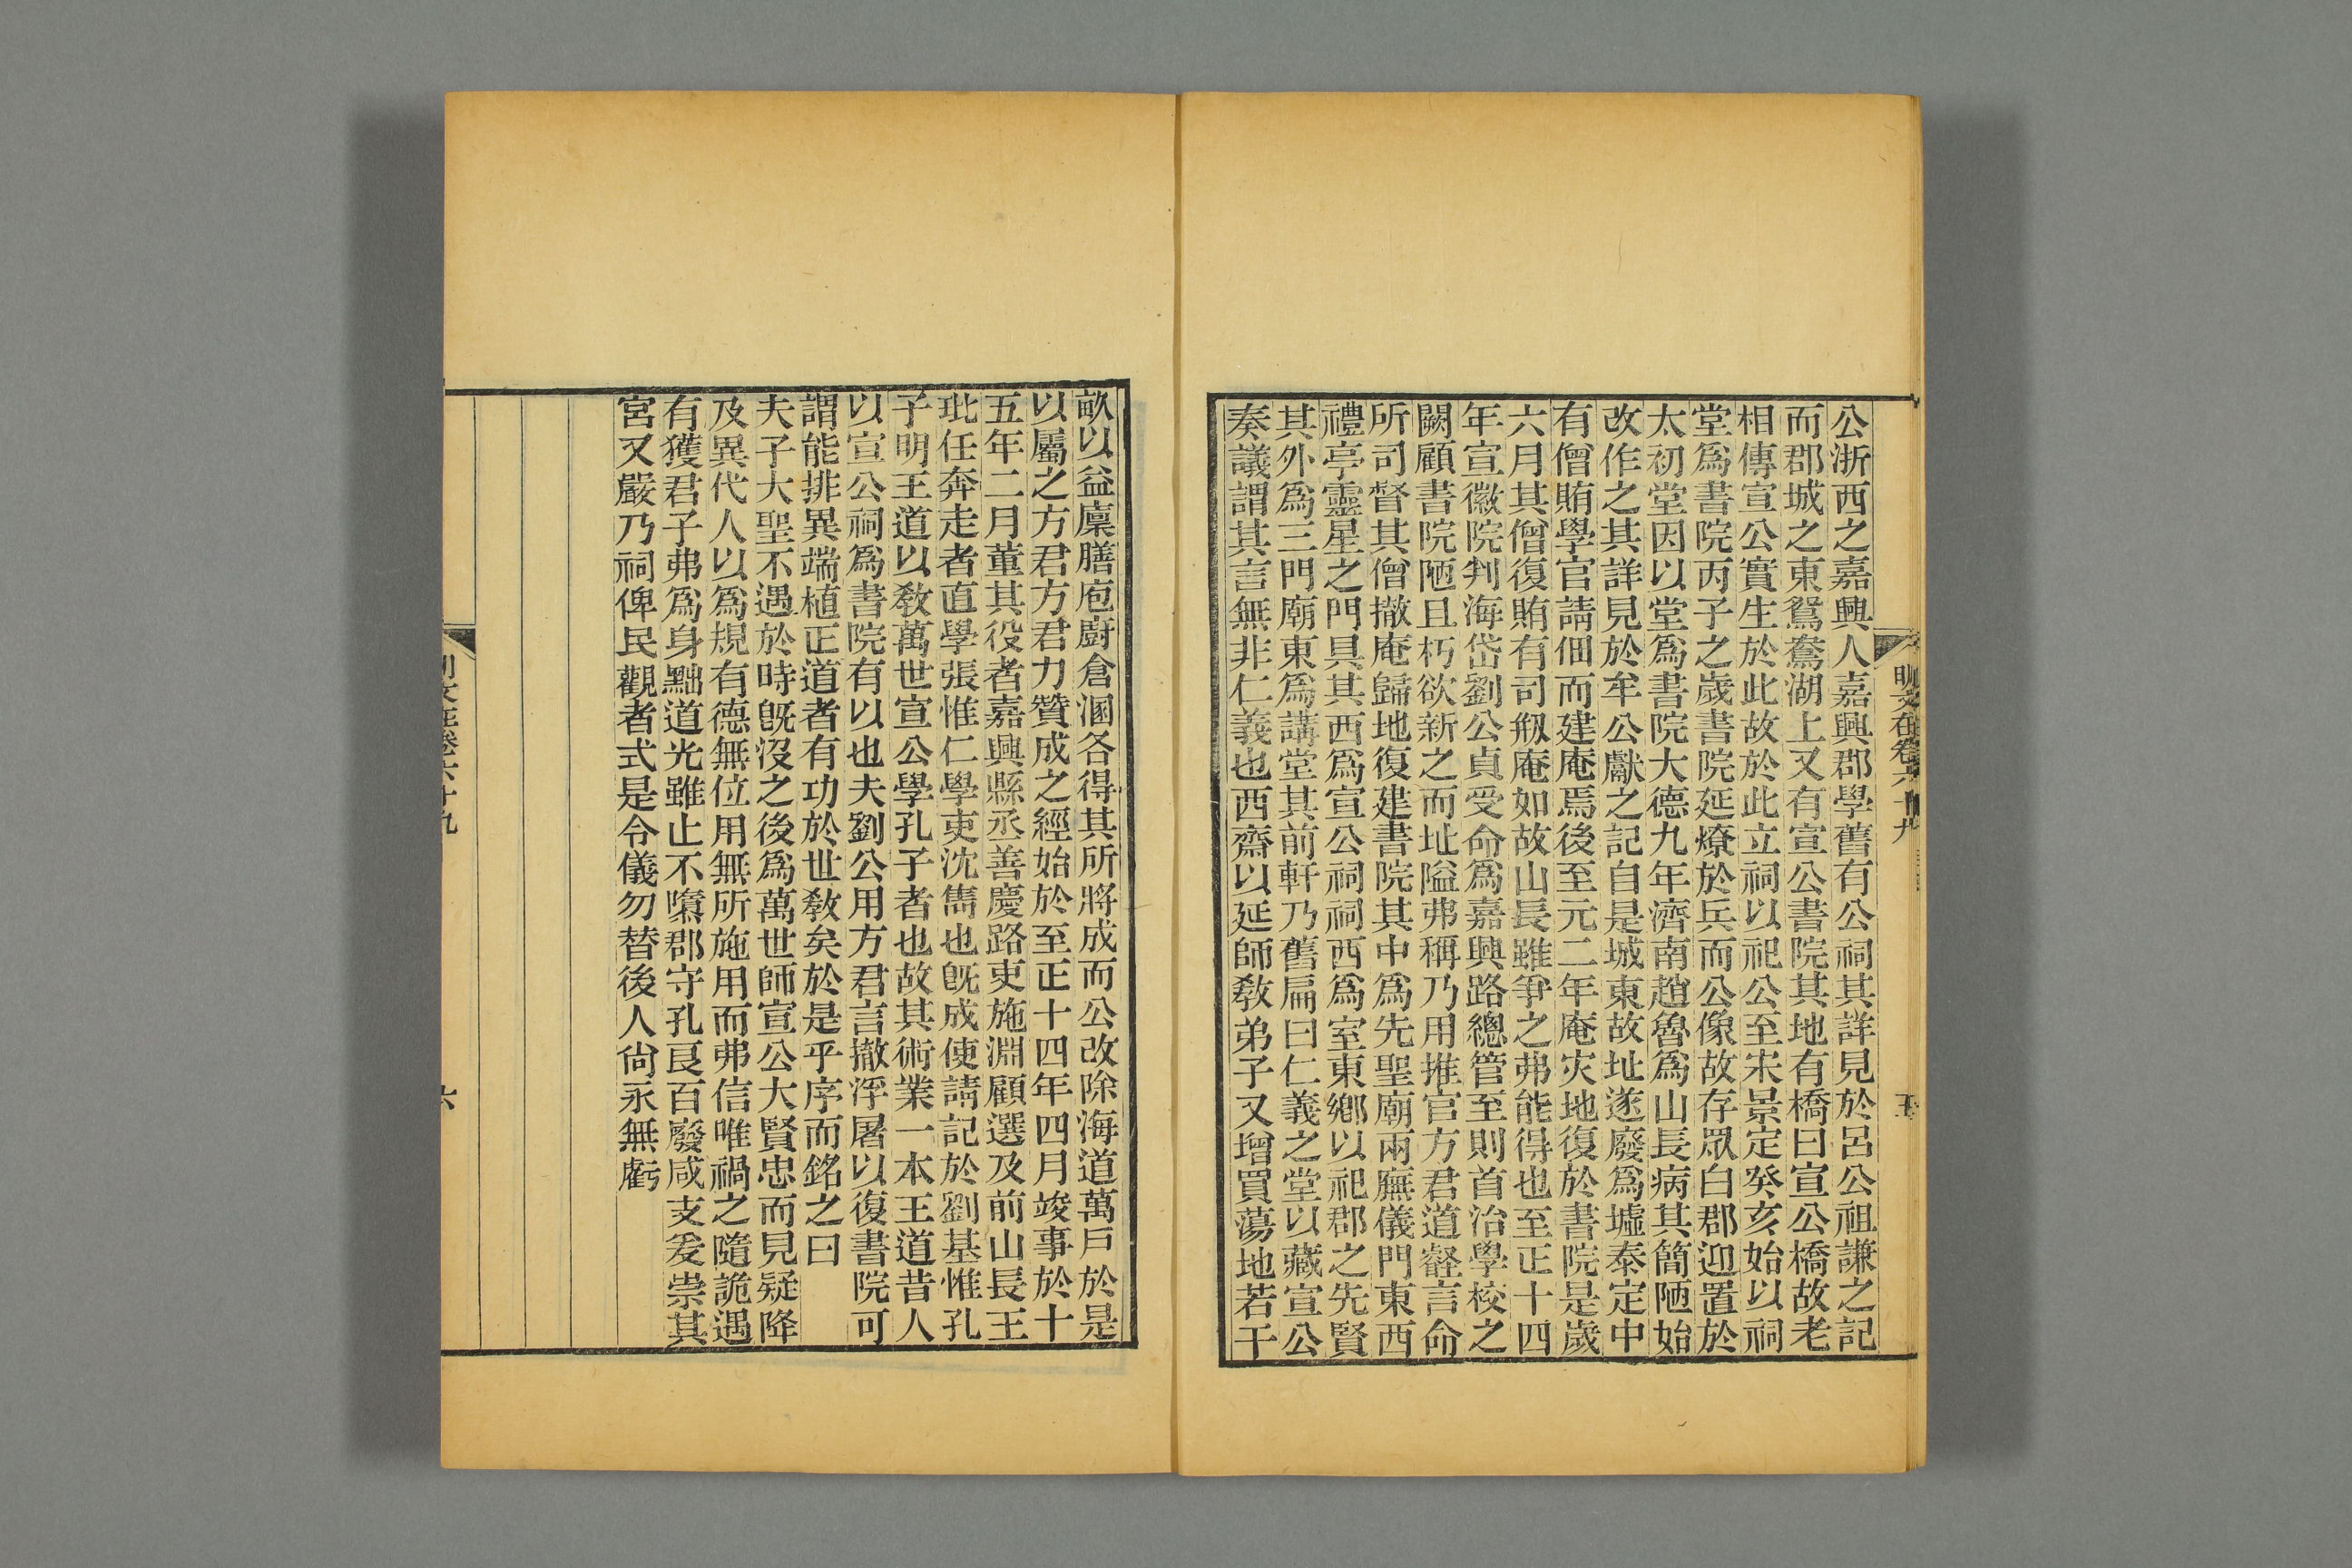 明文在卷六十九
五
公浙西之嘉興人嘉興郡學舊有公祠其詳見於呂公祖謙之記
而郡城之東鴛鴦湖上又有宣公書院其地有橋曰宣公橋故老
相傳宣公實生於此故於此立祠以祀公至宋景定癸亥始以祠
堂爲書院丙子之歲書院延燎於兵而公像故存眾白郡迎置於
太初堂因以堂爲書院大德九年濟南趙魯爲山長病其簡陋始
改作之其詳見於牟公獻之記自是城東故址遂廢爲墟泰定中
有僧賄學官請佃而建庵焉後至元二年庵灾地復於書院是歲
六月其僧復賄有司剏庵如故山長雖爭之弗能得也至正十四
年宣徽院判海岱劉公貞受命爲嘉興路總管至則首治學校之
闕顧書院陋且朽欲新之而址隘弗稱乃用推官方君道壡言命
所司督其僧撤庵歸地復建書院其中爲先聖廟兩廡儀門東西
禮亭靈星之門具其西爲宣公祠祠西爲室東鄉以祀郡之先賢
其外爲三門廟東爲講堂其前軒乃舊扁曰仁義之堂以藏宣公
奏議謂其言無非仁義也西齋以延師敎弟子又增買蕩地若干
畝以益廩膳庖廚倉溷各得其所將成而公改除海道萬戶於是
以屬之方君方君力贊成之經始於至正十四年四月竣事於十
五年二月董其役者嘉興縣丞善慶路吏施淵顧選及前山長王
玭任奔走者直學張惟仁學吏沈雋也旣成使請記於劉基惟孔
子明王道以敎萬世宣公學孔子者也故其術業一本王道昔人
以宣公祠爲書院有以也夫劉公用方君言撤浮屠以復書院可
謂能排異端植正道者有功於世敎矣於是乎序而銘之曰
夫子大聖不遇於時旣沒之後爲萬世師宣公大賢忠而見疑降
及異代人以爲規有德無位用無所施用而弗信唯禍之隨詭遇
有獲君子弗爲身黜道光雖止不隳郡守孔良百廢咸支爰崇其
宮又嚴乃祠俾民觀者式是令儀勿替後人尙永無虧
明文在卷六十九
六